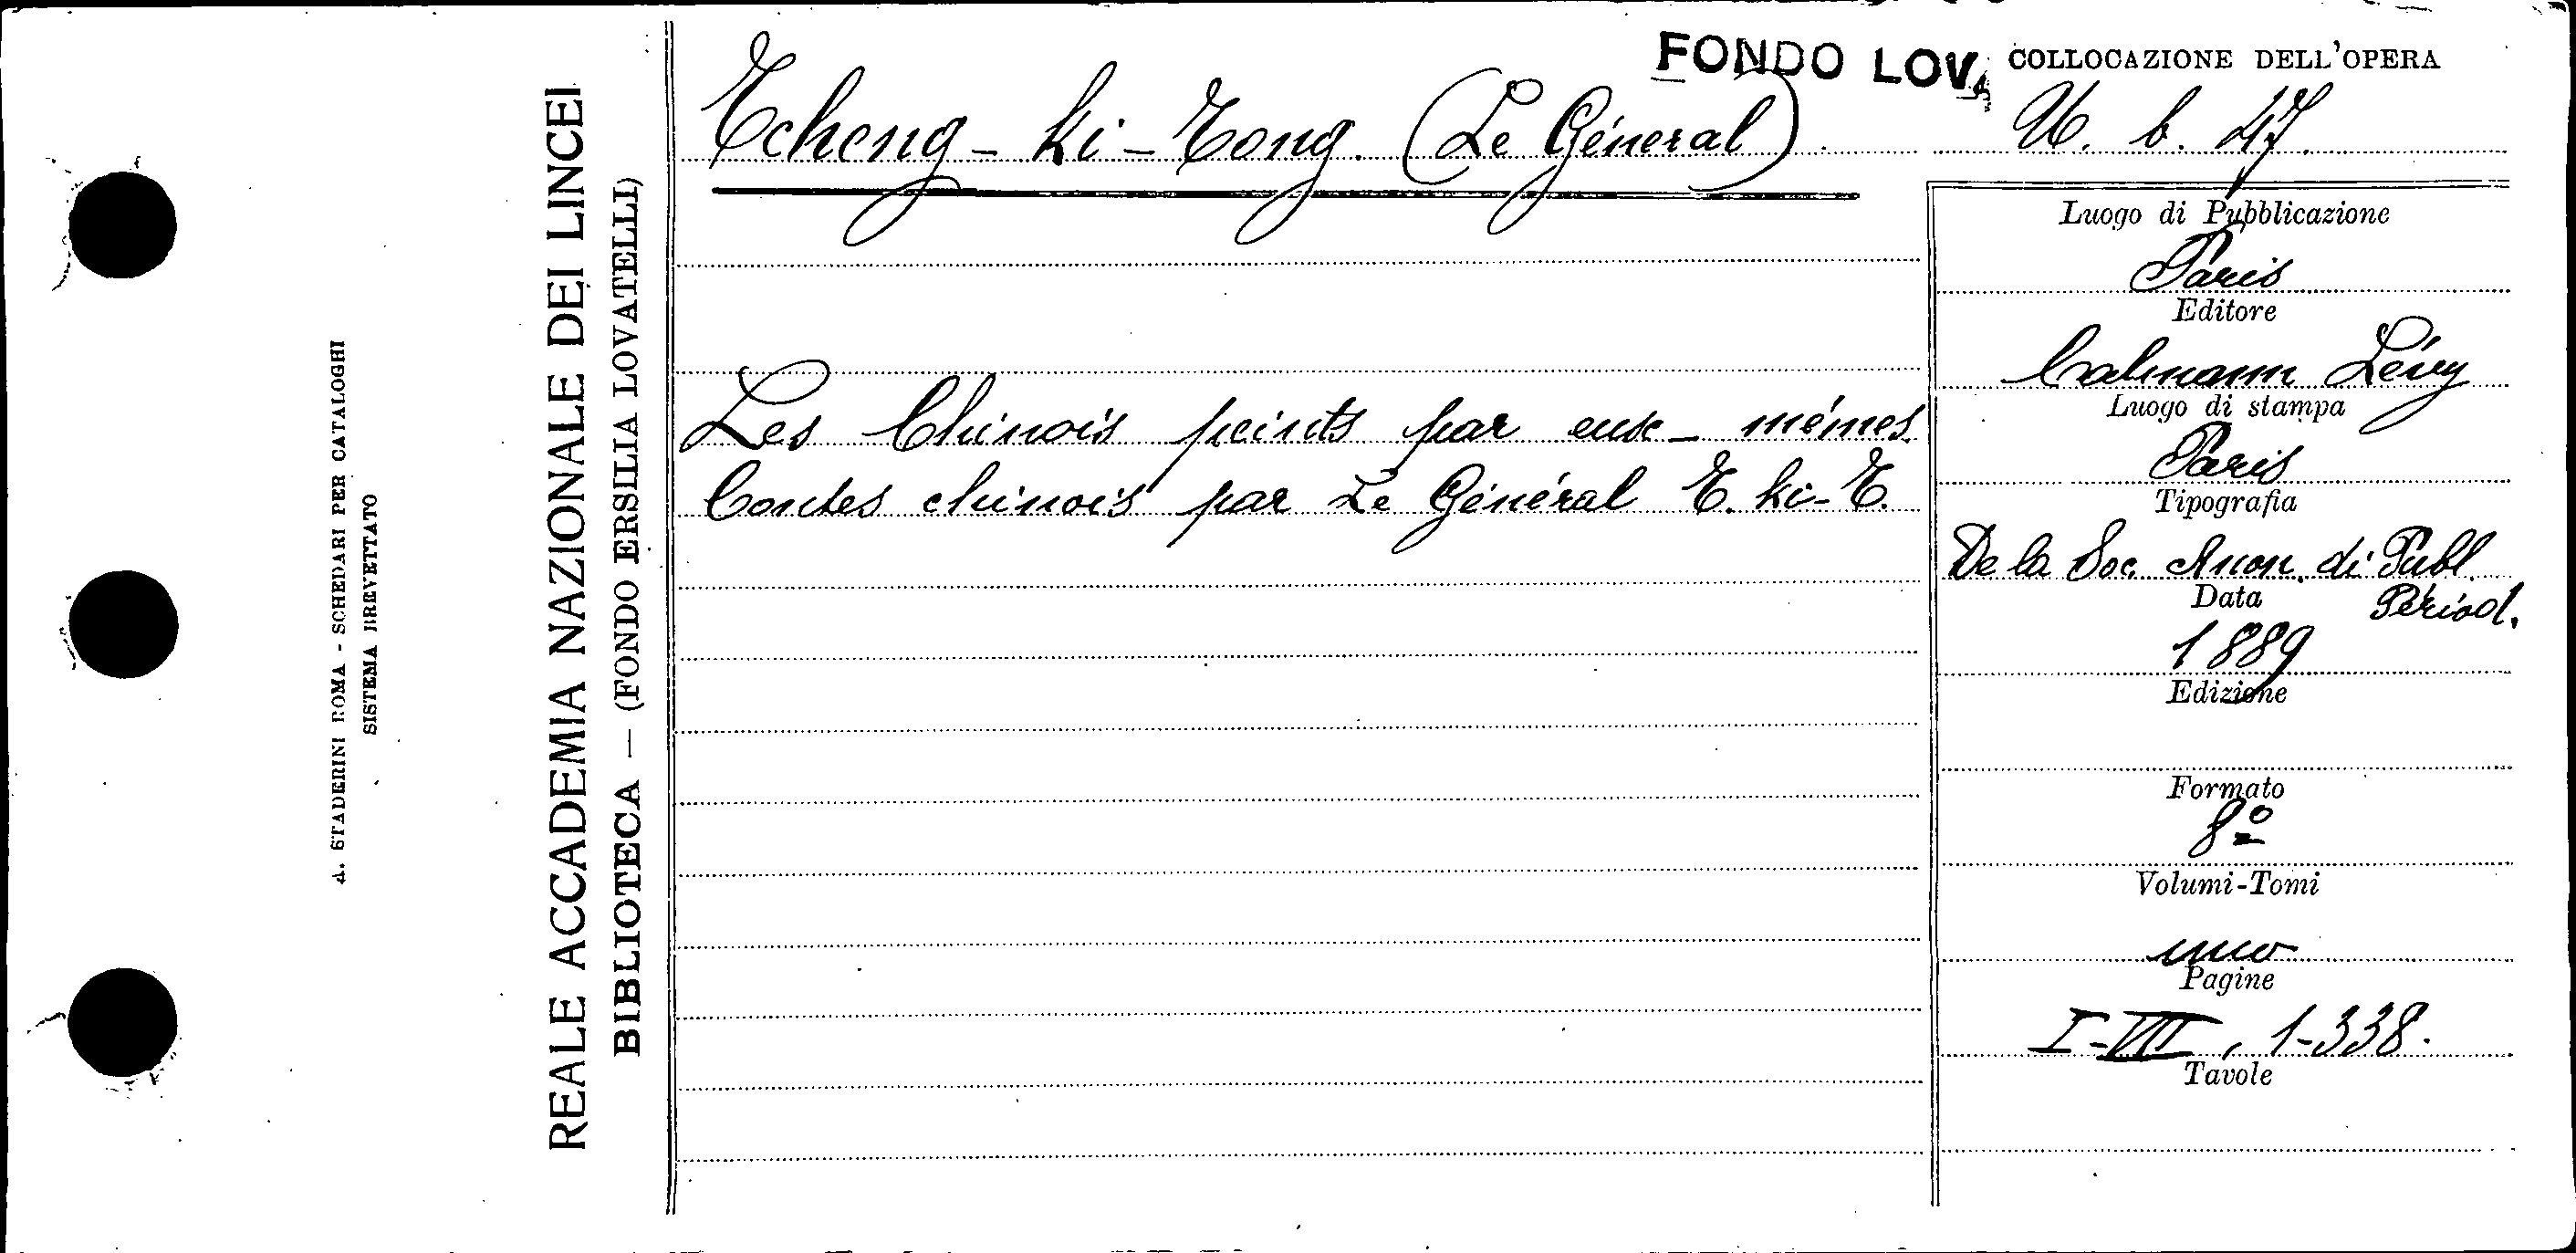 FONDO LOV.
COLLOCAZIONE DELL'OPERA
Tcheng-ki-Tong. (Le Géneral).
U. b. 47.
Luogo di Pubblicazione
Paris
Editore
Calmann Lévy
Luogo di stampa
Paris
Tipografia
De la Soc. Anon. di Publ. Périod.
Data
1889
Edizione
Formato
8º
Volumi-Tomi
uno
Pagine
I-VII, 1-338.
Tavole
Les Chinois peints par eux-mêmes.
Contes chinois par Le Général T. ki-T.
REALE ACCADEMIA NAZIONALE DEI LINCEI
BIBLIOTECA — (FONDO ERSILIA LOVATELLI)
A. STADERINI ROMA - SCHEDARI PER CATALOGHI
SISTEMA BREVETTATO